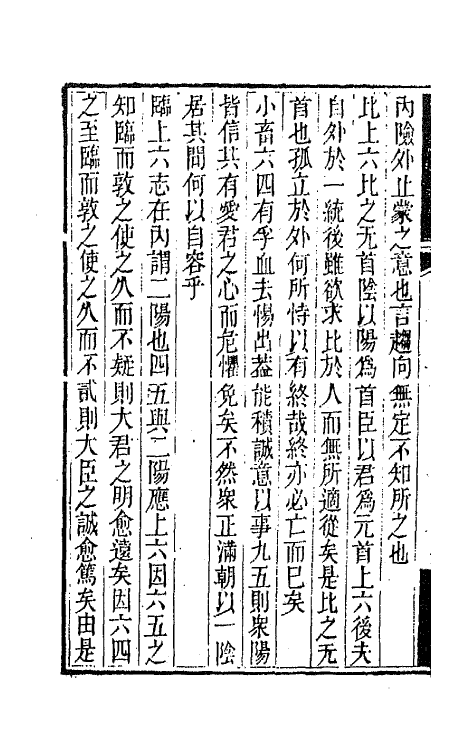 內險外止蒙之意也言趨向無定不知所之也
比上六比之无首陰以陽爲首臣以君爲元首上六後夫
自外於一統後雖欲求比於人而無所適從矣是比之无
首也孤立於外何所恃以有終哉終亦必亡而已矣
小畜六四有孚血去惕出蓋能積誠意以事九五則衆陽
皆信其有愛君之心而危懼免矣不然衆正滿朝以一陰
居其間何以自容乎
臨上六志在內謂二陽也四五與二陽應上六因六五之
知臨而敦之使之久而不疑則大君之明愈遠矣因六四
之至臨而敦之使之久而不貳則大臣之誠愈篤矣由是